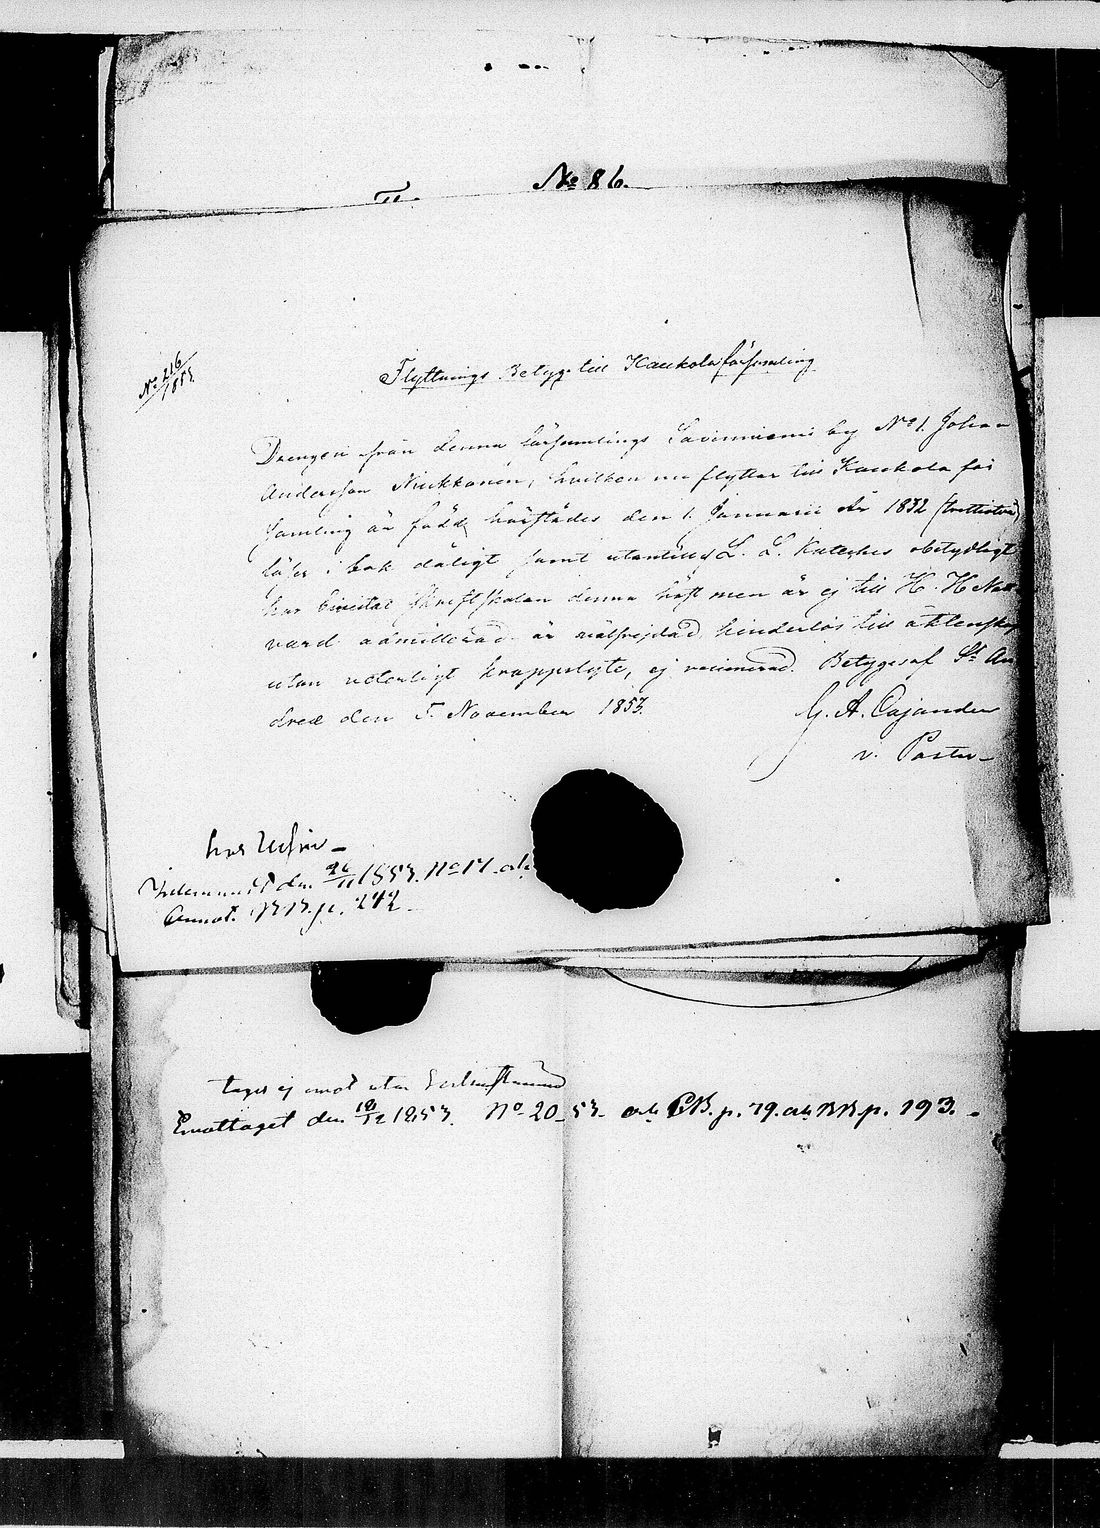 No 86.
No 216/1853
Flyttnings Betyg till Kaukola församling
Drengen från denna församlings Lavinniemi by No 1. Johan
Andersson Niukkanen, hvilken nu flyttar till Kaukola för
samling är född härstädes den 1 Januarii År 1832 (trettiotvå)
läser i bok dåligt samt utantill L. L. Kateches obetydligt
har bivistat skriftskolan denna höst men är ej till H. H. Natt
vard admitterad. är välfrejdad, hinderlös till äktenskap
utan veterligt kroppslyte, ej vaccinerad. Betygas af St An
dreæ den 5 November 1853.
G. A. Cajander
v. Pastor
Inlemnadt den 26/11 1853. No 17. och
Annot. p. 242
tages ej emot utan
Emottaget den 18/12 1853. No 20 53. och CB. p. 79. och p. 193.